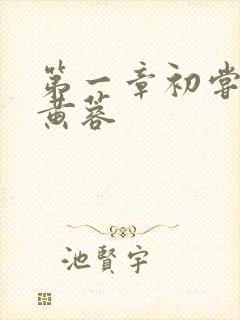 第一章初尝
黄蓉
池賢宇